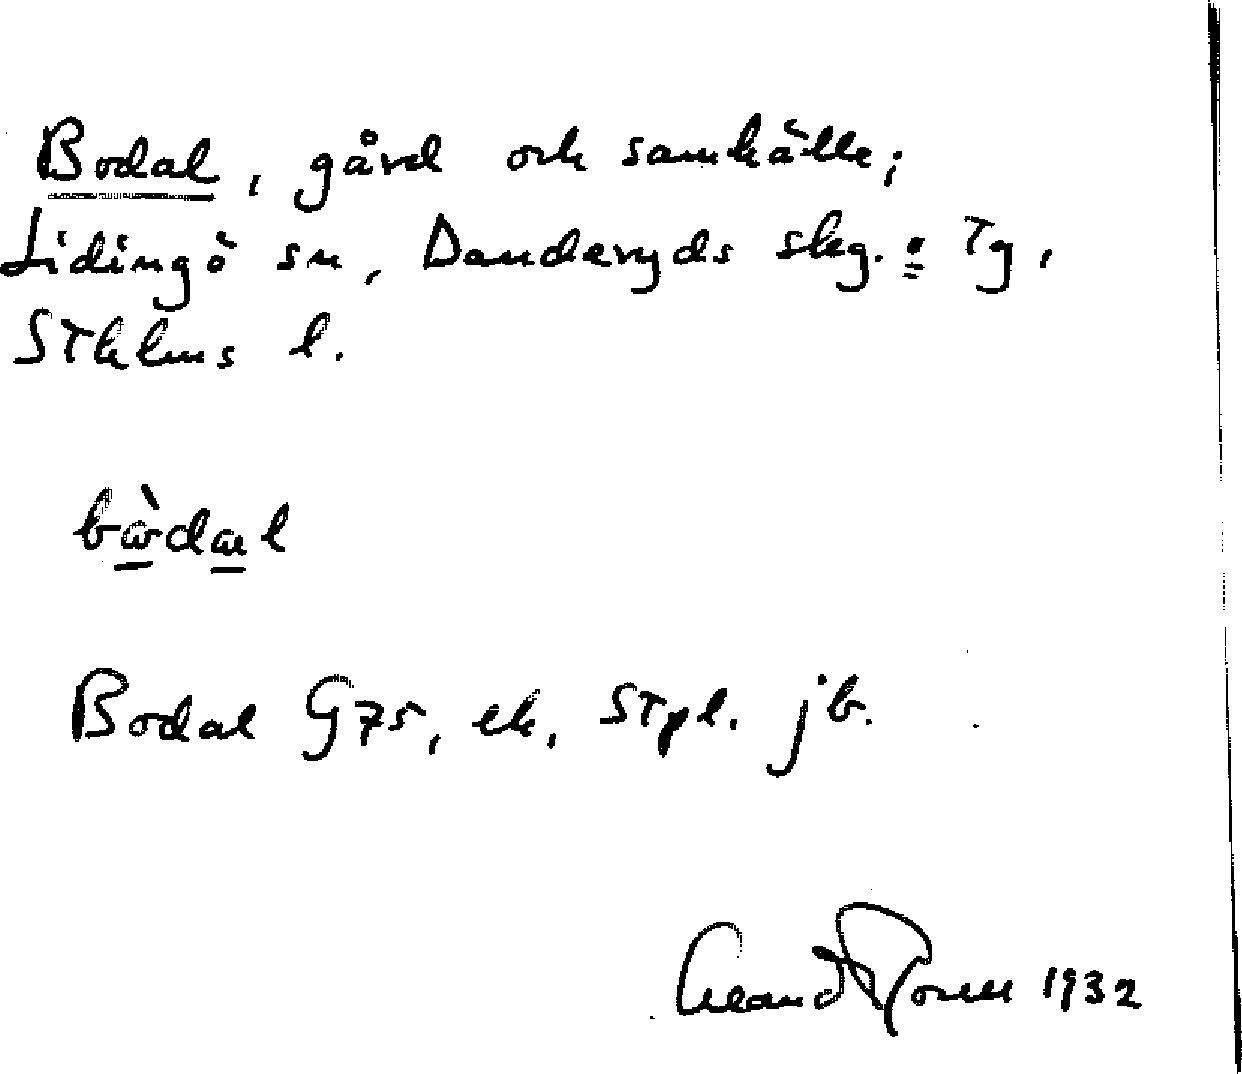 Bodal, gård och samhälle;
Lidingö sn, Danderyds skg. o Tg,
Sthlms l.
bòdal
Bodal G75, ek, Stpl. jb.
1932